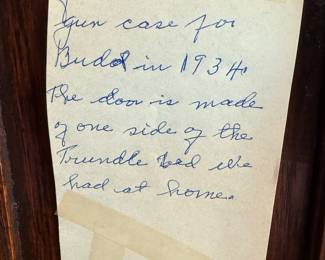 gun case for
Budd in 1934.
The door is made
of one side of the
Trundle bed we
had at home.